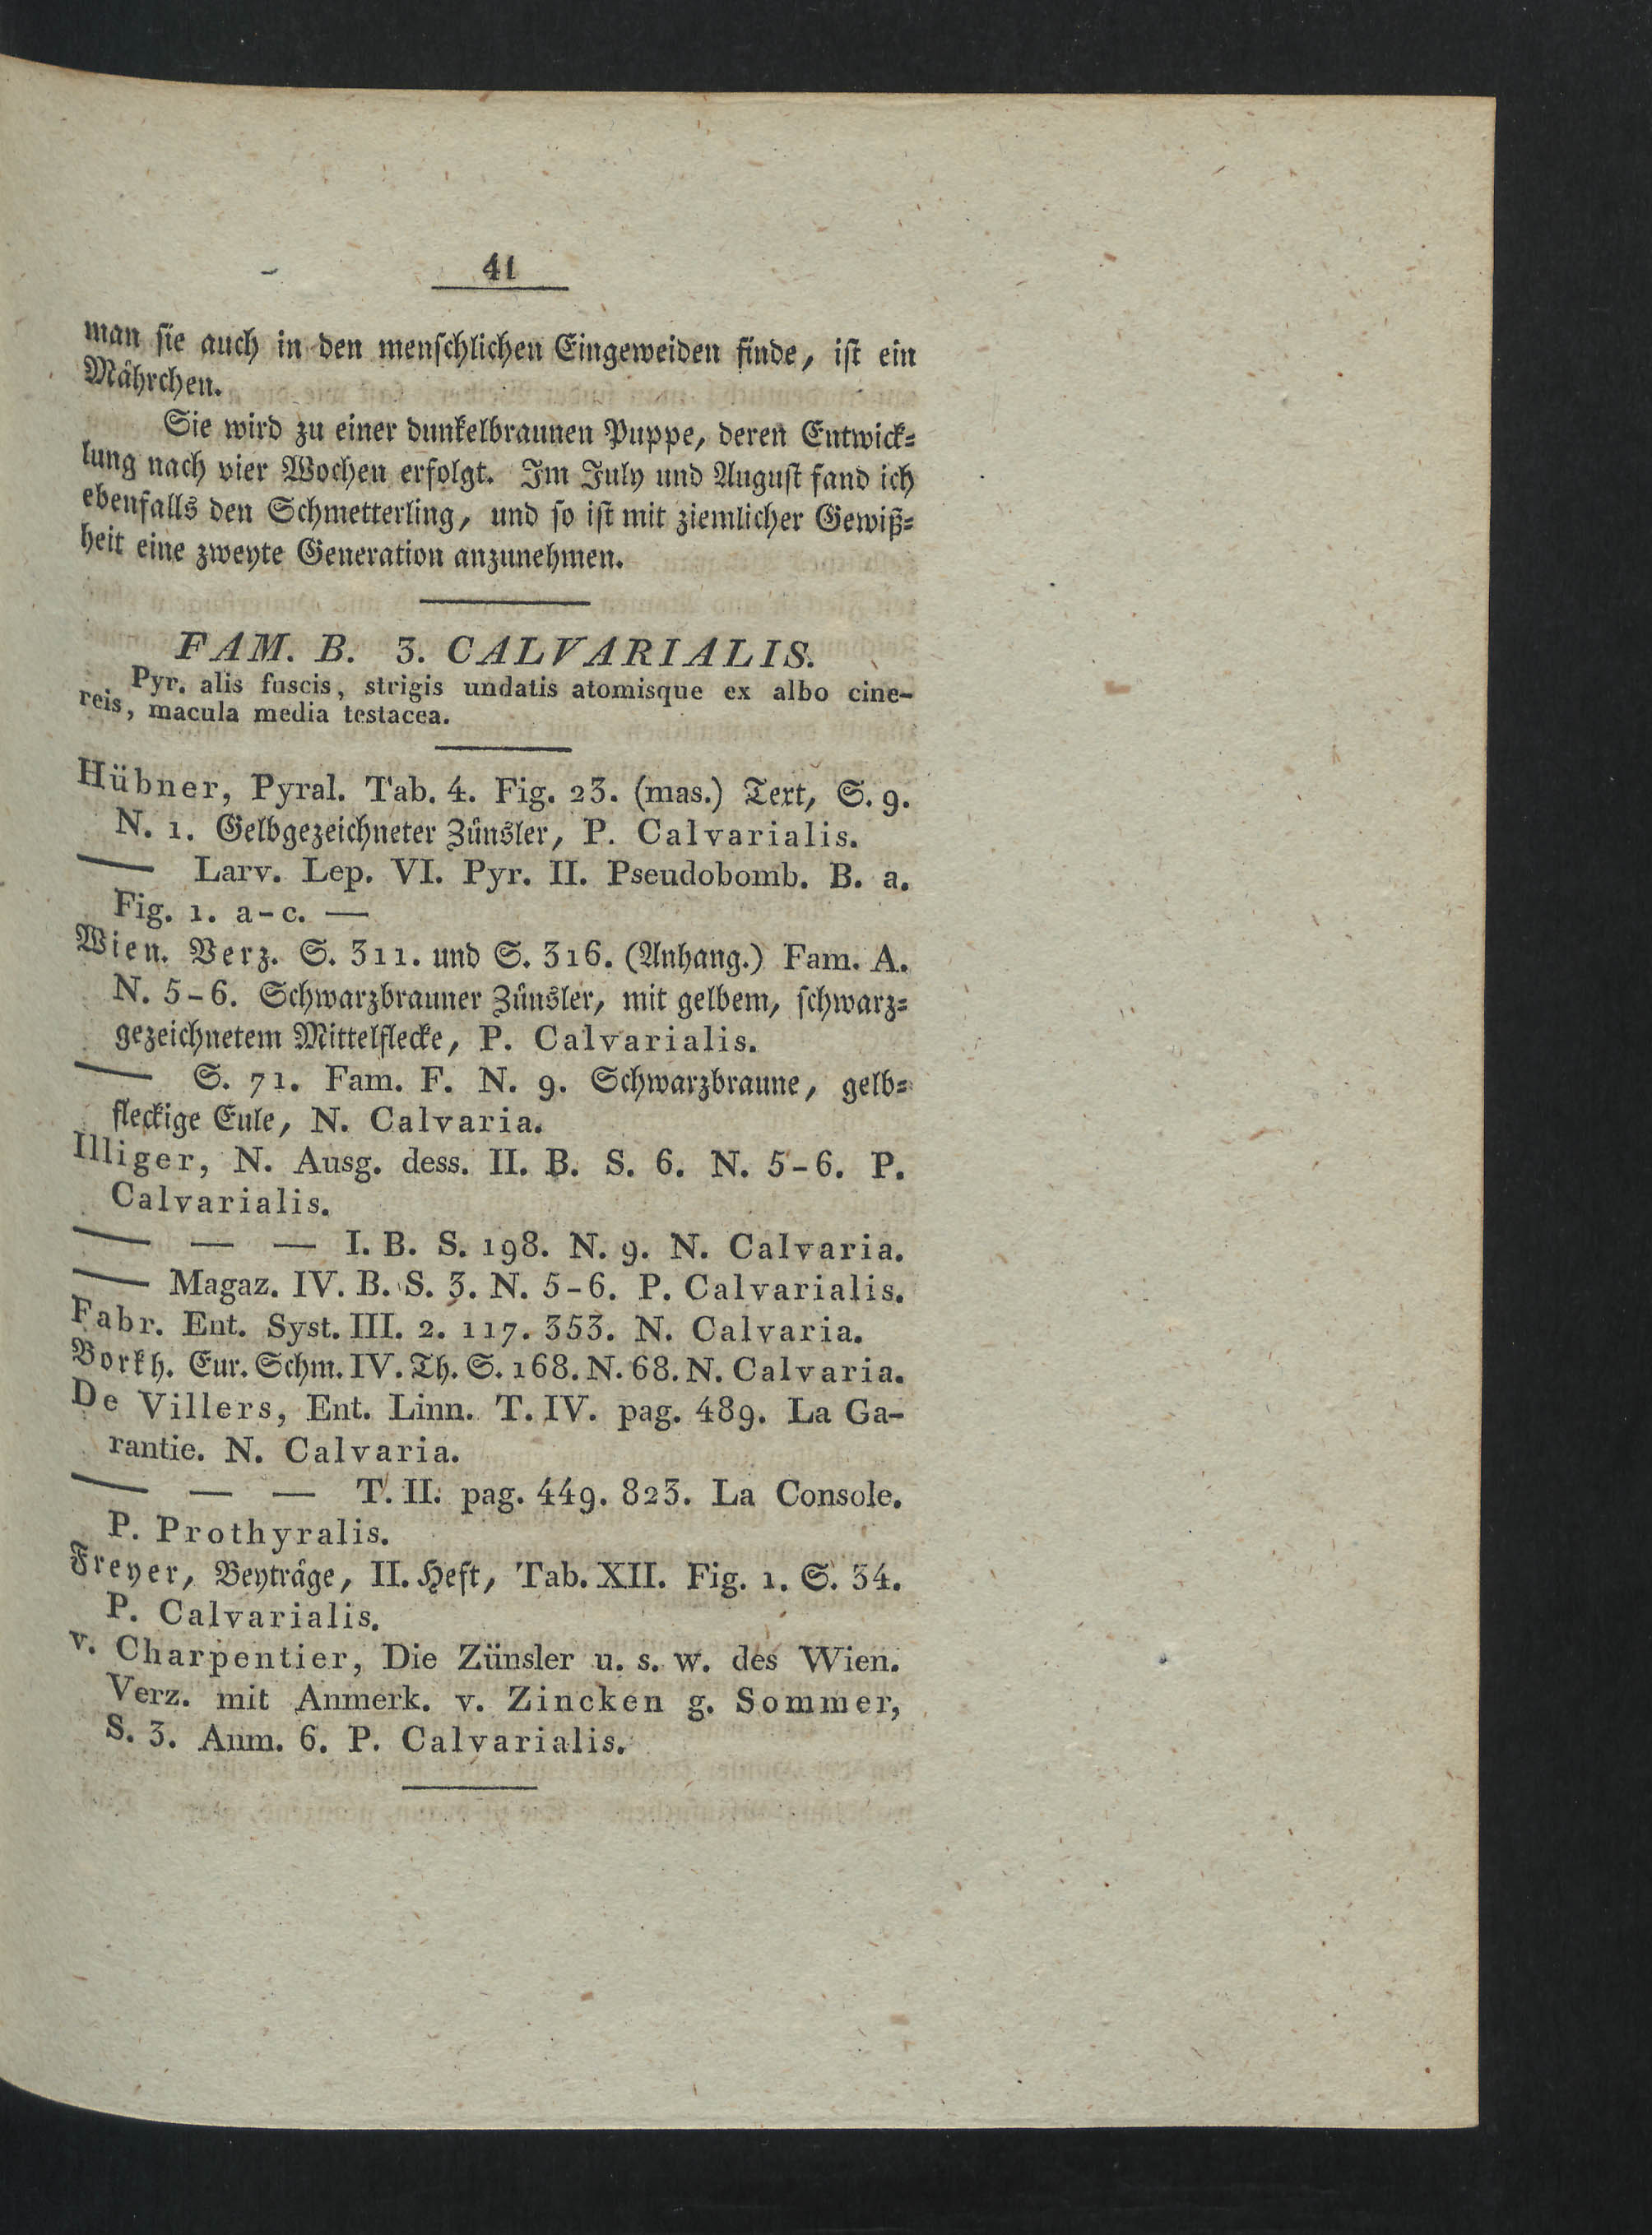 41
man sie auch in den menschlichen Eingeweiden finde, ist ein
Mährchen.
Sie wird zu einer dunkelbraunen Puppe, deren Entwick-
lung nach vier Wochen erfolgt. Im July und August fand ich
ebenfalls den Schmetterling, und so ist mit ziemlicher Gewiß-
heit eine zweyte Generation anzunehmen.
FAM. B. 3. CALVARIALIS.
Pyr. alis fuscis, strigis undatis atomisque ex albo cine-
reis, macula media testacea.
Hübner, Pyral. Tab. 4. Fig. 23. (mas.) Text, S. 9.
N. 1. Gelbgezeichneter Zünsler, P. Calvarialis.
— Larv. Lep. VI. Pyr. II. Pseudobomb. B. a.
Fig. 1. a-c. —
Wien. Verz. S. 311. und S. 316. (Anhang.) Fam. A.
N. 5-6. Schwarzbrauner Zünsler, mit gelbem, schwarz-
gezeichnetem Mittelflecke, P. Calvarialis.
— S. 71. Fam. F. N. 9. Schwarzbraune, gelb-
fleckige Eule, N. Calvaria.
Illiger, N. Ausg. dess. II. B. S. 6. N. 5-6. P.
Calvarialis.
— — — I. B. S. 198. N. 9. N. Calvaria.
— Magaz. IV. B. S. 3. N. 5-6. P. Calvarialis.
Fabr. Ent. Syst. III. 2. 117. 353. N. Calvaria.
Borkh. Eur. Schm. IV. Th. S. 168. N. 68. N. Calvaria.
De Villers, Ent. Linn. T. IV. pag. 489. La Ga-
rantie. N. Calvaria.
— — — T. II. pag. 449. 823. La Console.
P. Prothyralis.
Freyer, Beyträge, II. Heft, Tab. XII. Fig. 1. S. 34.
P. Calvarialis.
v. Charpentier, Die Zünsler u. s. w. des Wien.
Verz. mit Anmerk. v. Zincken g. Sommer,
S. 3. Anm. 6. P. Calvarialis.